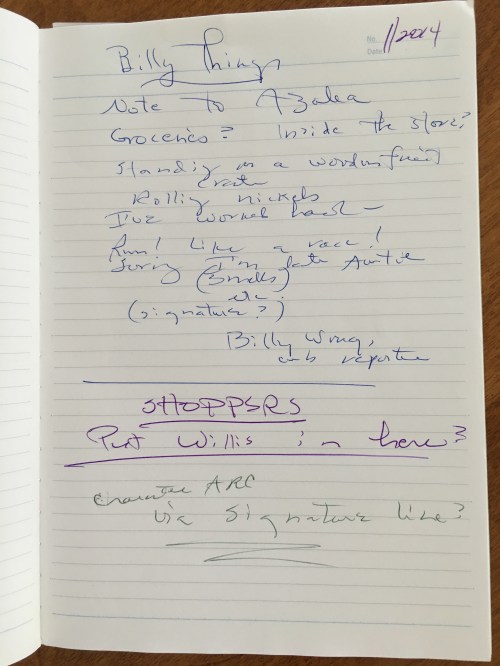 No.
Date
11/2014
Billy Things
Note to Azalea
Groceries? Inside the store?
Standig on a wooden fruit
crate
Rollig nickels
I've worked hard —
Run! Like a race!
Sorry I'm late Auntie
(Smells)
etc.
(signature?)
Billy Wong,
cub reporter
SHOPPERS
Put Willis in here?
Character ARC
via signature line?